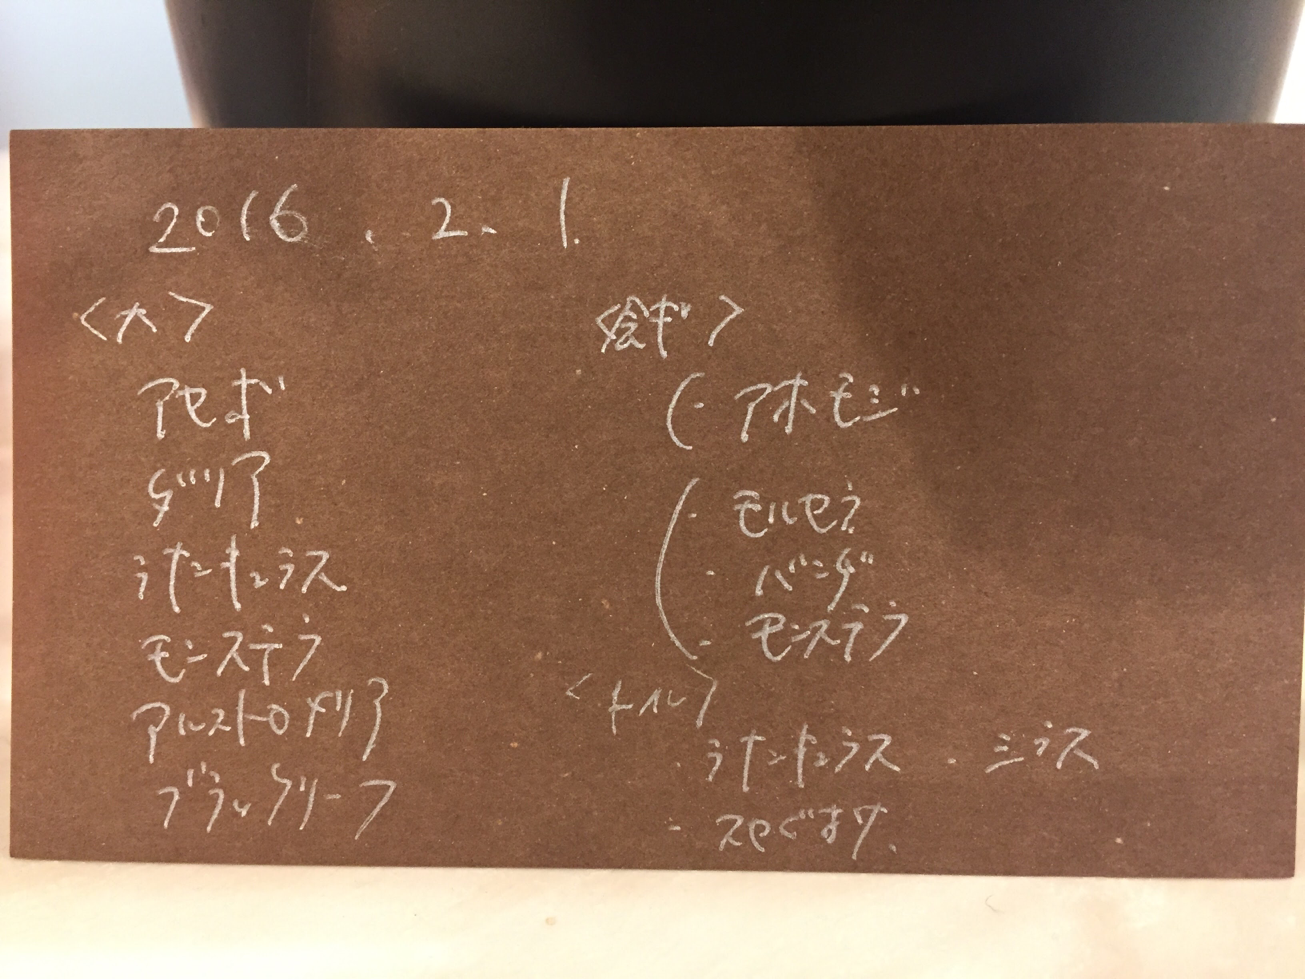 2016.2.1.
<大>
アセボ
ダリア
ラナンキュラス
モンステラ
アルストロメリア
ブラックリーフ
・アオモジ
・モルセラ
・バンダ
・モンステラ
<トイレ>
・ラナンキュラス ・ミラス